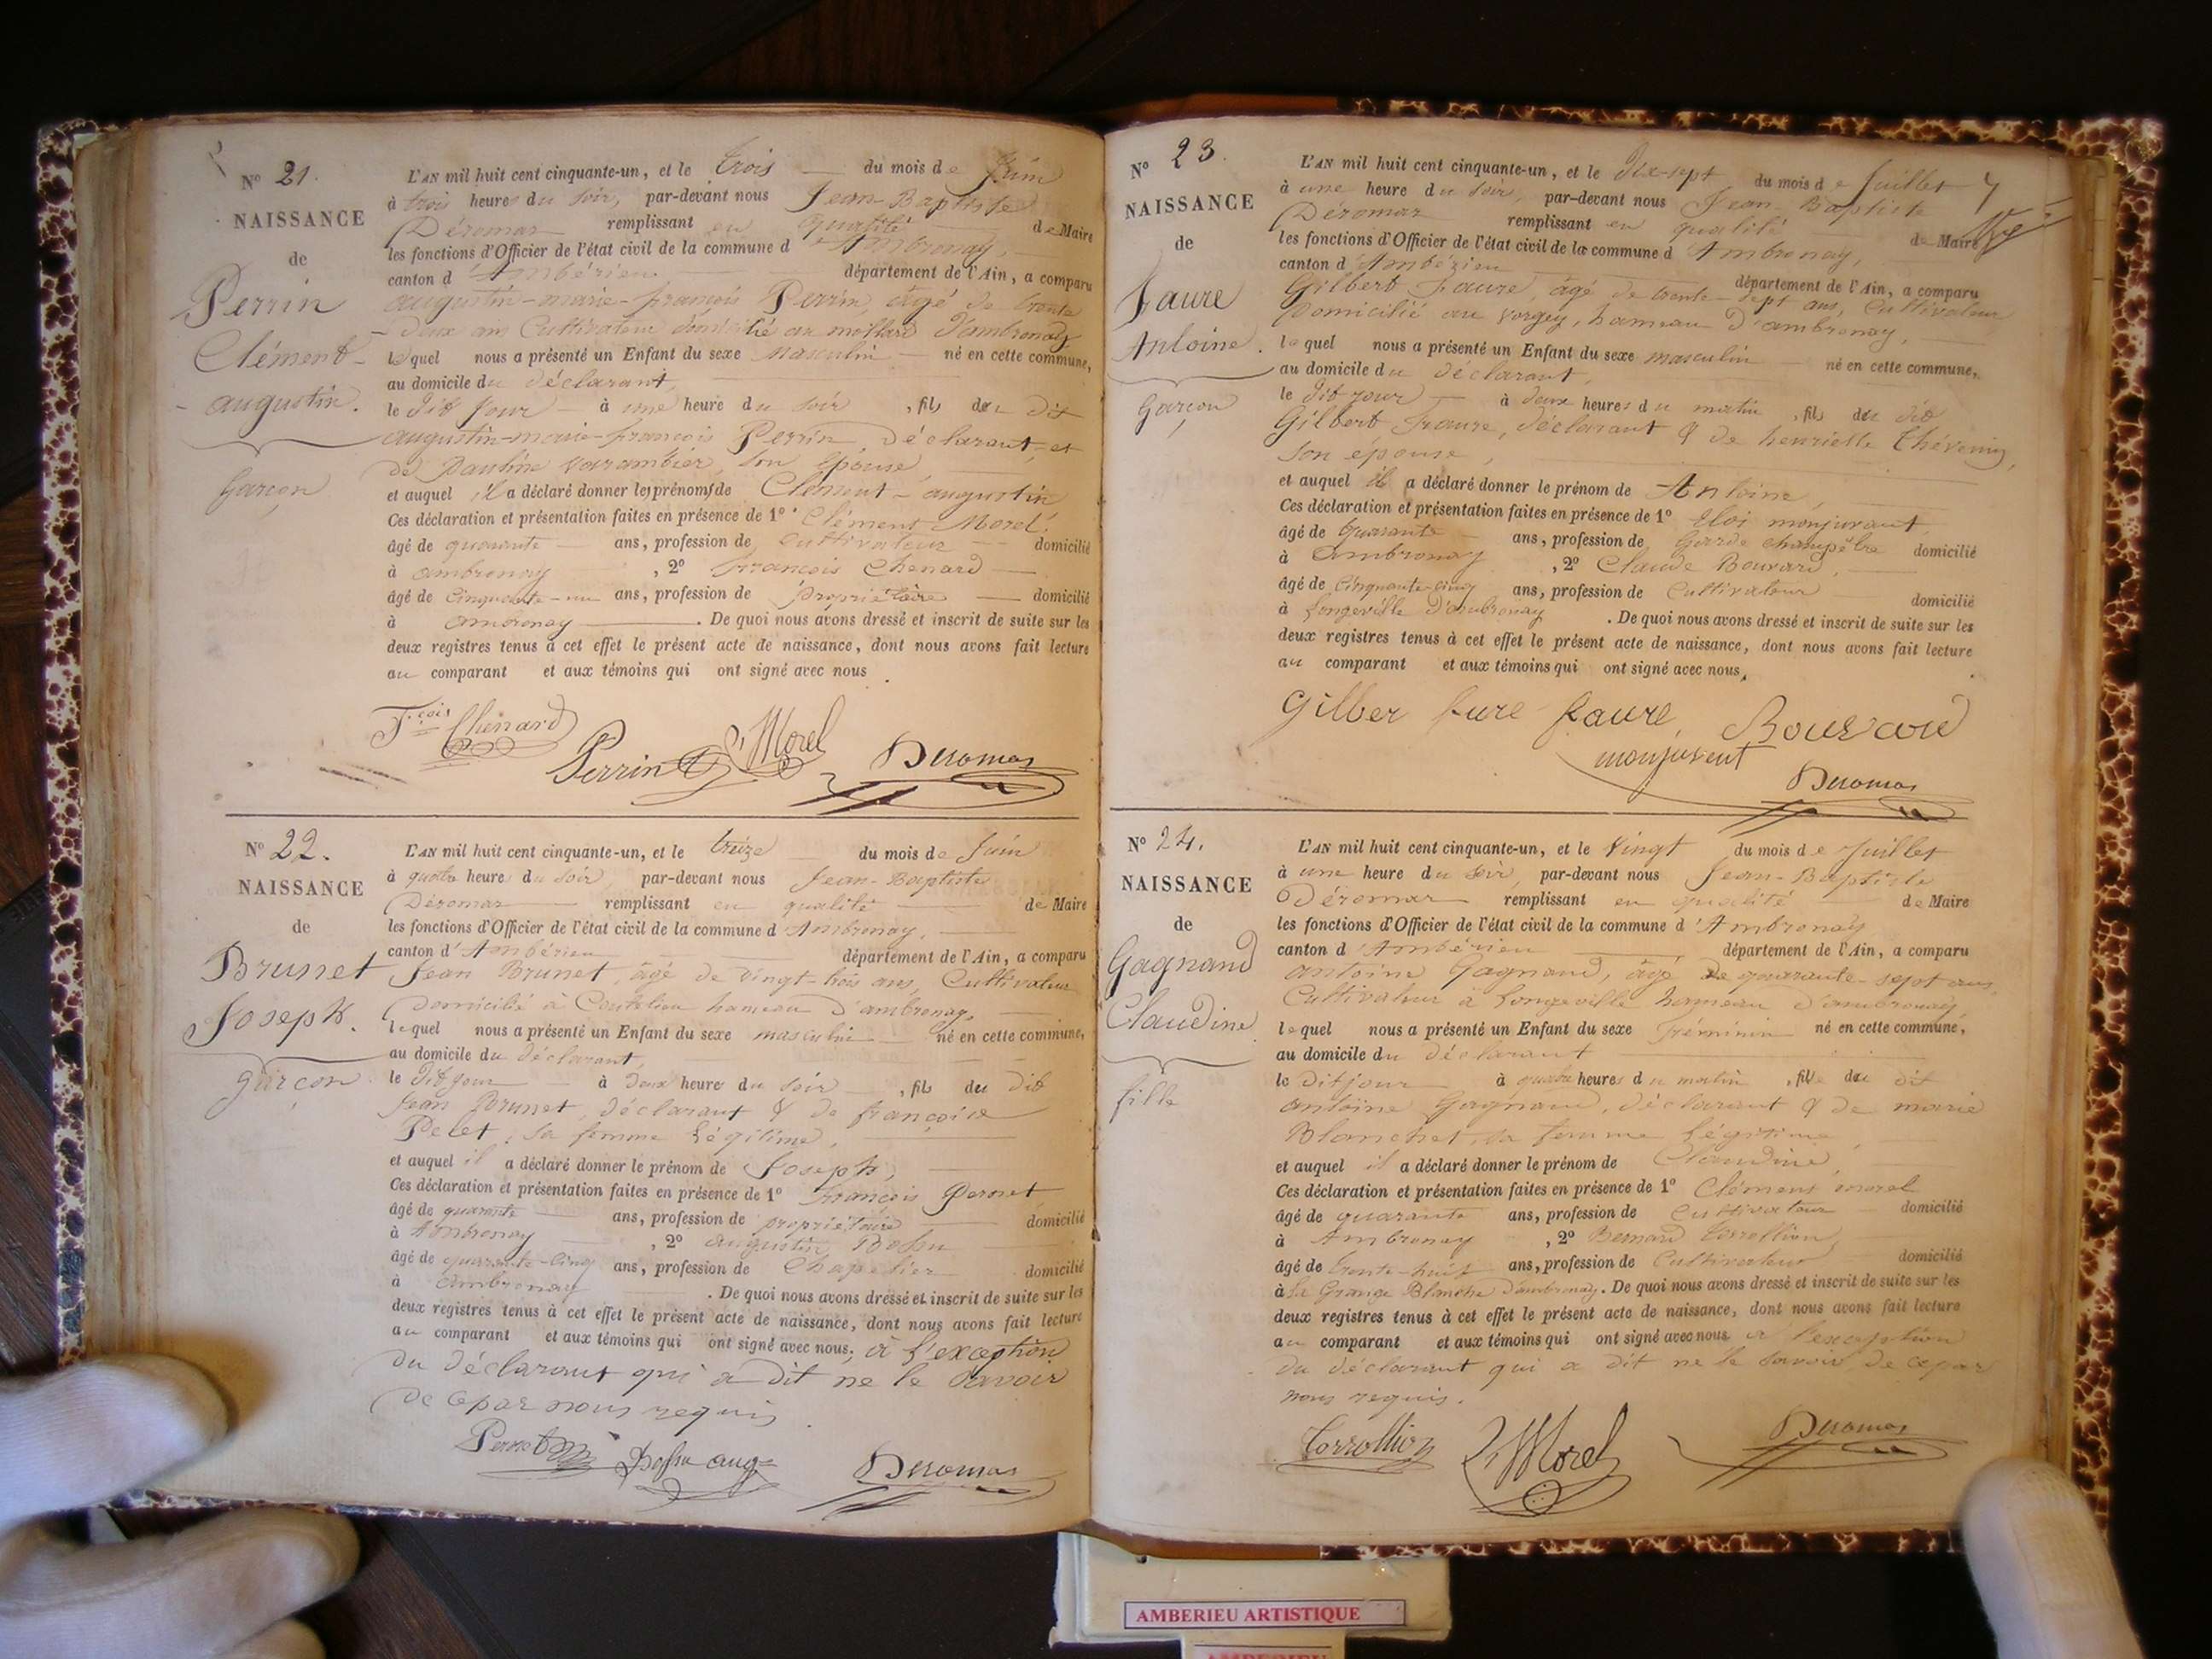 N° 21.
NAISSANCE
de
Perrin
Clément-
augustin.
garçon
L'AN mil huit cent cinquante-un, et le trois du mois de Juin
à trois heures du soir, par-devant nous Jean-Baptiste
Déromas remplissant en qualité de Maire
les fonctions d'Officier de l'état civil de la commune d'Ambronay,
canton d'Ambérieu département de l'Ain, a comparu
augustin-marie-françois Perrin, âgé de trente
-deux ans Cultivateur domicilié au mollard d'ambronay
lequel nous a présenté un Enfant du sexe masculin né en cette commune,
au domicile du déclarant,
le dit jour à une heure du soir, fils du dit
augustin-marie-françois Perrin, déclarant, et
de pauline varambier, son épouse,
et auquel il a déclaré donner les prénoms de Clément-augustin
Ces déclaration et présentation faites en présence de 1° Clément Morel.
âgé de quarante ans, profession de cultivateur domicilié
à ambronay, 2° françois Chenard
âgé de cinquante-un ans, profession de propriétaire domicilié
à ambronay. De quoi nous avons dressé et inscrit de suite sur les
deux registres tenus à cet effet le présent acte de naissance, dont nous avons fait lecture
au comparant et aux témoins qui ont signé avec nous.
F.çois Chenard Perrin Morel Deromas
N° 22.
NAISSANCE
de
Brunet
Joseph.
garçon
L'AN mil huit cent cinquante-un, et le treize du mois de Juin
à quatre heures du soir, par-devant nous Jean-Baptiste
Déromas remplissant en qualité de Maire
les fonctions d'Officier de l'état civil de la commune d'Ambronay,
canton d'Ambérieu département de l'Ain, a comparu
Jean Brunet, âgé de vingt-trois ans, Cultivateur
domicilié à hameau d'ambronay,
lequel nous a présenté un Enfant du sexe masculin né en cette commune,
au domicile du déclarant,
le dit jour à deux heures du soir, fils du dit
Jean Brunet, déclarant & de françoise
Pelet, sa femme légitime,
et auquel il a déclaré donner le prénom de Joseph,
Ces déclaration et présentation faites en présence de 1° françois Pernet
âgé de quarante ans, profession de propriétaire domicilié
à Ambronay, 2° augustin Bossu
âgé de quarante-cinq ans, profession de Chapelier domicilié
à ambronay. De quoi nous avons dressé et inscrit de suite sur les
deux registres tenus à cet effet le présent acte de naissance, dont nous avons fait lecture
au comparant et aux témoins qui ont signé avec nous; à l'exception
du déclarant qui a dit ne le savoir
de ce par nous requis.
Pernet Bossu aug.te Deromas
N° 23.
NAISSANCE
de
Faure
Antoine.
Garçon
L'AN mil huit cent cinquante-un, et le Dix-sept du mois de Juillet
à une heure du soir, par-devant nous Jean-Baptiste
Déromas remplissant en qualité de Maire
les fonctions d'Officier de l'état civil de la commune d'Ambronay,
canton d'Ambérieu département de l'Ain, a comparu
Gilbert Faure, âgé de trente-sept ans, Cultivateur
Domicilié au vorgey, hameau d'ambronay,
lequel nous a présenté un Enfant du sexe masculin né en cette commune,
au domicile du déclarant,
le dit jour à deux heures du matin, fils du dit
Gilbert Faure, déclarant & de henriette Thévenin,
son épouse,
et auquel il a déclaré donner le prénom de Antoine,
Ces déclaration et présentation faites en présence de 1° Eloi monjuvent,
âgé de quarante ans, profession de garde champêtre domicilié
à Ambronay, 2° Claude Bouvard,
âgé de cinquante-cinq ans, profession de Cultivateur domicilié
à longeville d'ambronay. De quoi nous avons dressé et inscrit de suite sur les
deux registres tenus à cet effet le présent acte de naissance, dont nous avons fait lecture
au comparant et aux témoins qui ont signé avec nous,
Gilber fure faure
monjuvent Deromas
N° 24.
NAISSANCE
de
Gagnand
Claudine
fille
L'AN mil huit cent cinquante-un, et le Vingt du mois de Juillet
à une heure du soir, par-devant nous Jean-Baptiste
Déromas remplissant en qualité de Maire
les fonctions d'Officier de l'état civil de la commune d'Ambronay
canton d'Ambérieu département de l'Ain, a comparu
antoine Gagnand, âgé de quarante-sept ans,
Cultivateur à longeville hameau d'ambronay
lequel nous a présenté un Enfant du sexe féminin né en cette commune,
au domicile du déclarant
le dit jour à quatre heures du matin, fille du dit
antoine Gagnand, déclarant & de marie
Blanchet, sa femme légitime,
et auquel il a déclaré donner le prénom de Claudine,
Ces déclaration et présentation faites en présence de 1° Clément morel
âgé de quarante ans, profession de cultivateur domicilié
à Ambronay, 2° Bernard Torrollion,
âgé de trente-huit ans, profession de Cultivateur domicilié
à la Grange Blanche d'ambronay. De quoi nous avons dressé et inscrit de suite sur les
deux registres tenus à cet effet le présent acte de naissance, dont nous avons fait lecture
au comparant et aux témoins qui ont signé avec nous à l'exception
du déclarant qui a dit ne le savoir de ce par
nous requis.
Torrollion Morel Deromas
AMBERIEU ARTISTIQUE
AMBERIEU